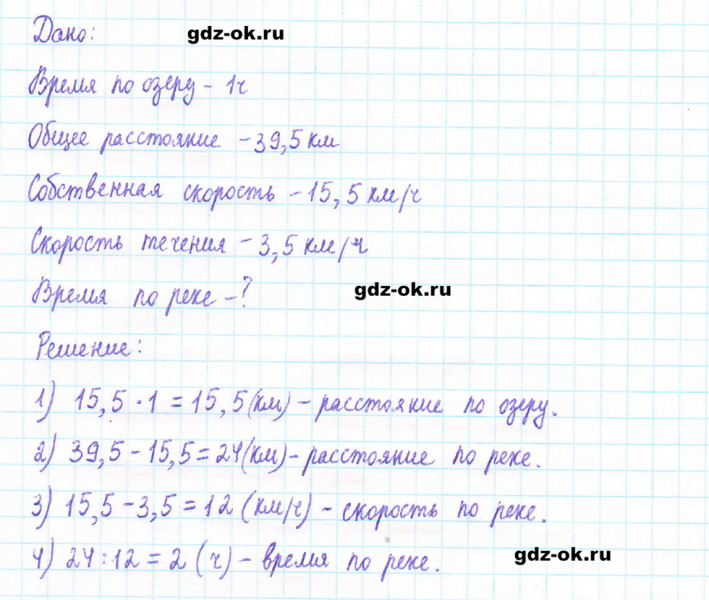 Дано:
gdz-ok.ru
Время по озеру - 1ч
Общее расстояние - 39,5 км
Собственная скорость - 15,5 км/ч
Скорость течения - 3,5 км/ч
Время по реке - ?
gdz-ok.ru
Решение:
1) 15,5 · 1 = 15,5 (км) - расстояние по озеру.
2) 39,5 - 15,5 = 24 (км) - расстояние по реке.
3) 15,5 - 3,5 = 12 (км/ч) - скорость по реке.
4) 24 : 12 = 2 (ч) - время по реке.
gdz-ok.ru